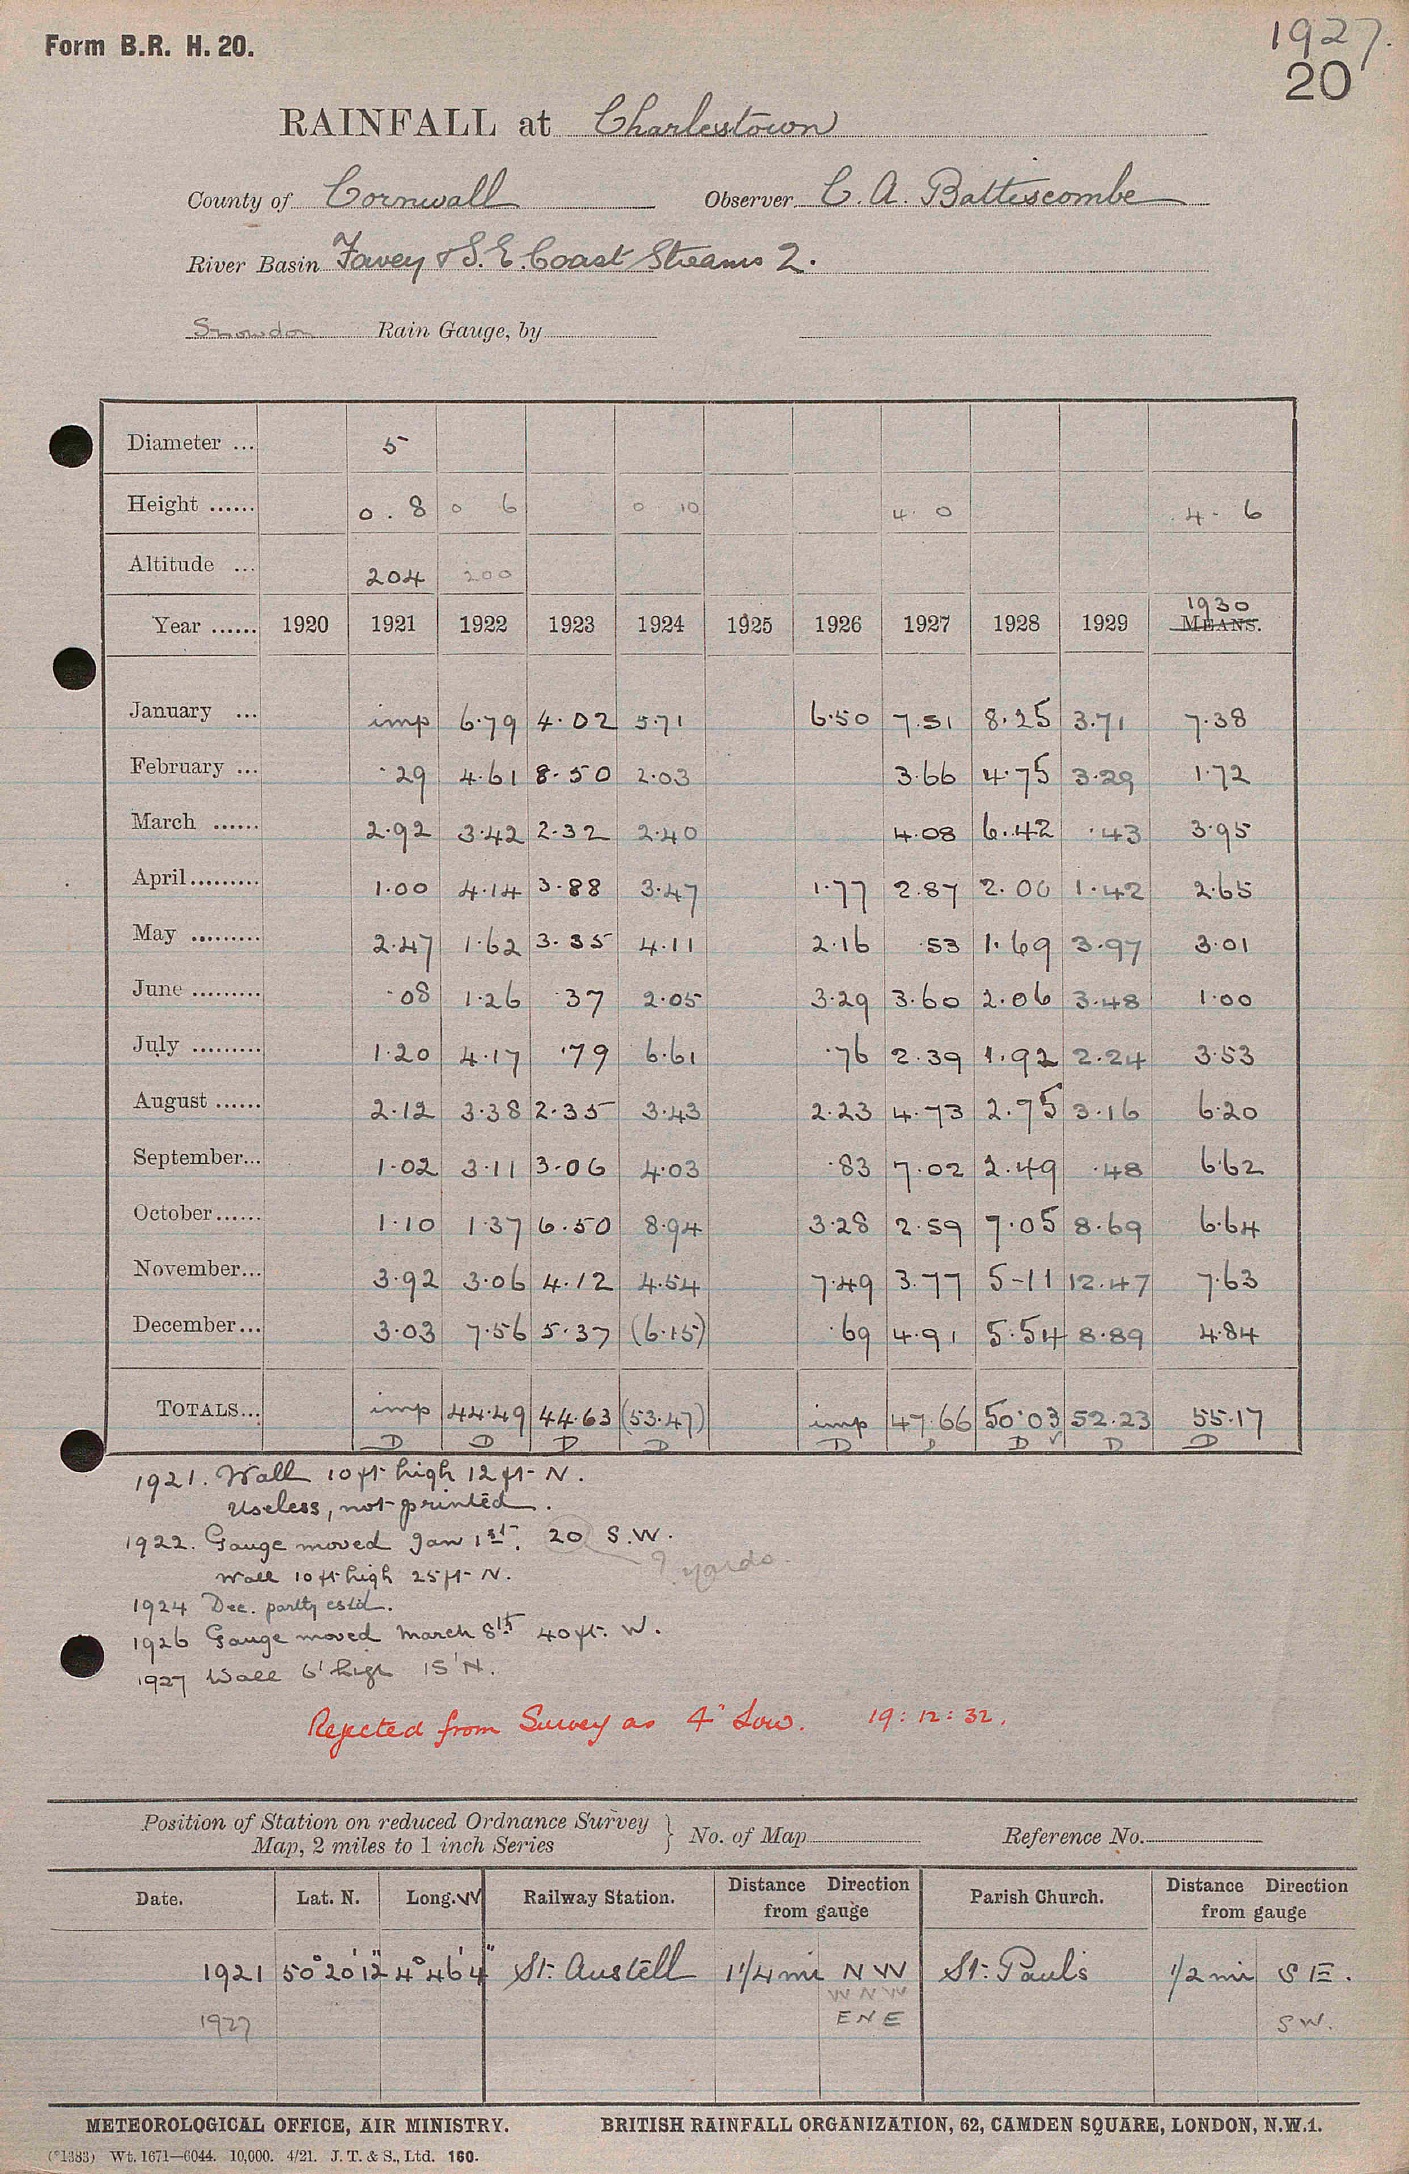 Form B.R. H. 20.
1927.
20
RAINFALL at Charlestown
County of Cornwall Observer C. A. Battiscombe
River Basin Fowey & S.E. Coast Streams 2.
Snowdon Rain Gauge, by
Diameter ... 5
Height ...... 0 . 8 0 6 0 10 4 . 0 4 - 6
Altitude ... 204 200
Year ...... 1920 1921 1922 1923 1924 1925 1926 1927 1928 1929 1930 MEANS.
January ... imp 6.79 4.02 5.71 6.50 7.51 8.25 3.71 7.38
February ... .29 4.61 8.50 2.03 3.66 4.75 3.29 1.72
March ...... 2.92 3.42 2.32 2.40 4.08 6.42 .43 3.95
April......... 1.00 4.14 3.88 3.47 1.77 2.87 2.00 1.42 2.65
May ......... 2.47 1.62 3.35 4.11 2.16 .53 1.69 3.97 3.01
June ......... .08 1.26 .37 2.05 3.29 3.60 2.06 3.48 1.00
July ......... 1.20 4.17 .79 6.61 .76 2.39 1.92 2.24 3.53
August ...... 2.12 3.38 2.35 3.43 2.23 4.73 2.75 3.16 6.20
September... 1.02 3.11 3.06 4.03 .83 7.02 2.49 .48 6.62
October...... 1.10 1.37 6.50 8.94 3.28 2.59 7.05 8.69 6.64
November... 3.92 3.06 4.12 4.54 7.49 3.77 5-11 12.47 7.63
December... 3.03 7.56 5.37 (6.15) .69 4.91 5.54 8.89 4.84
TOTALS... imp 44.49 44.63 (53.47) imp 47.66 50.03 52.23 55.17
D D D D D D D ✓ D D
1921. Wall 10 ft high 12 ft N.
Useless, not printed.
1922. Gauge moved Jan 1st. 20 S.W.
? yards.
Wall 10 ft high 25 ft N.
1924 Dec. partly estd.
1926 Gauge moved March 8th 40 ft. W.
1927 Wall 6' high 15' N.
Rejected from Survey as 4" Low. 19 : 12 : 32.
Position of Station on reduced Ordnance Survey
Map, 2 miles to 1 inch Series } No. of Map Reference No.
Date. Lat. N. Long. W Railway Station. Distance Direction from gauge Parish Church. Distance Direction from gauge
1921 50° 20' 12" 4° 46' 4" St. Austell 1 1/4 mi NW St. Paul's 1/2 mi S E.
WNW
1927 ENE SW.
METEOROLOGICAL OFFICE, AIR MINISTRY. BRITISH RAINFALL ORGANIZATION, 62, CAMDEN SQUARE, LONDON, N.W.1.
(*1383) Wt. 1671—6044. 10,000. 4/21. J. T. & S., Ltd. 160.